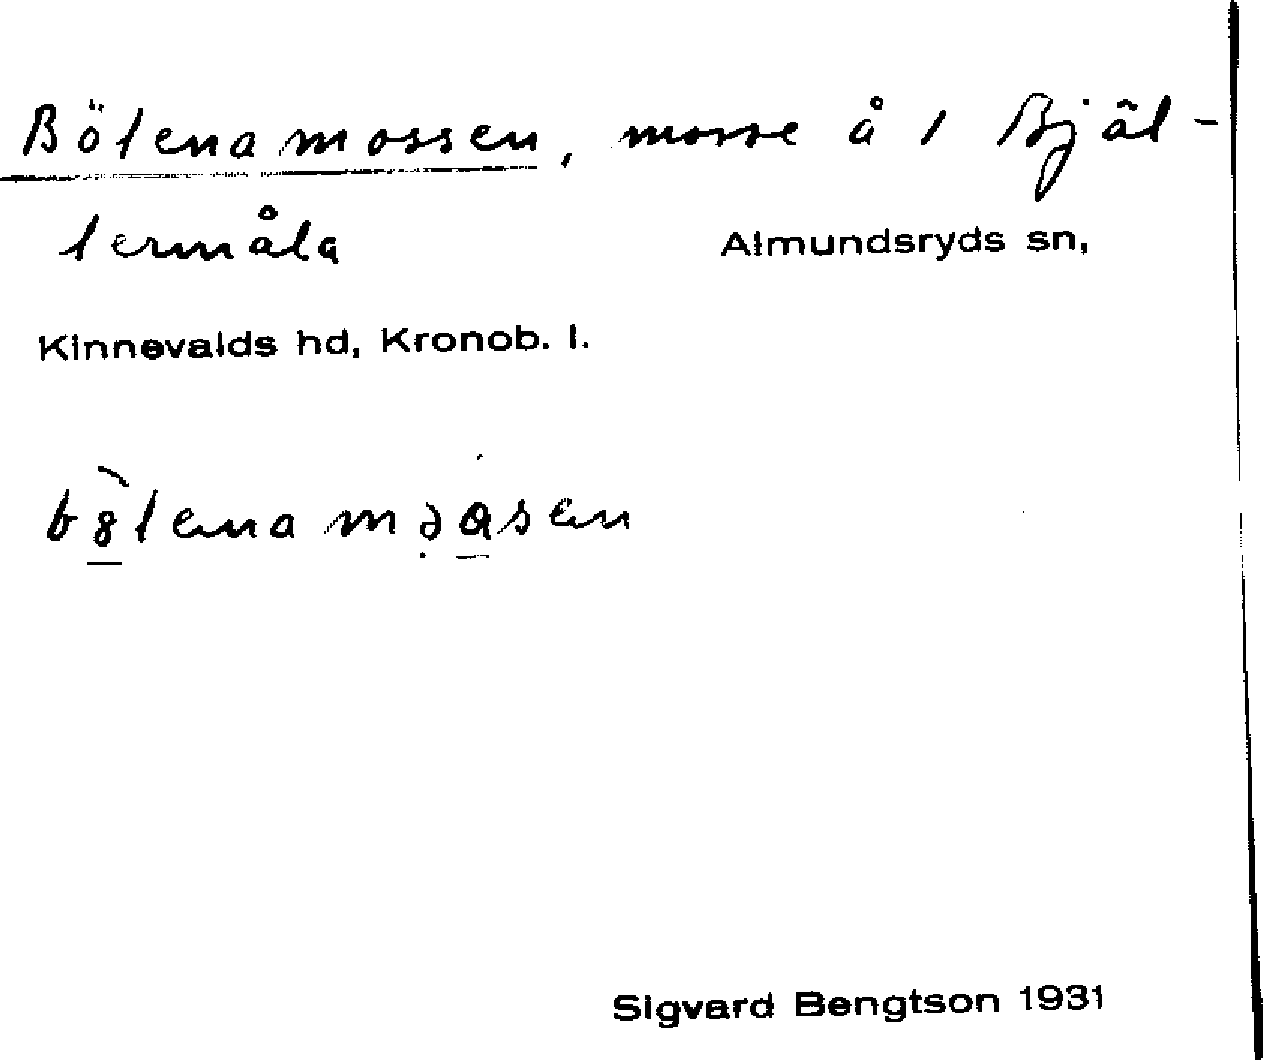 Bölenamossen, mosse å 1 Bjäl-
lermåla Almundsryds sn,
Kinnevalds hd, Kronob. l.
Sigvard Bengtson 1931